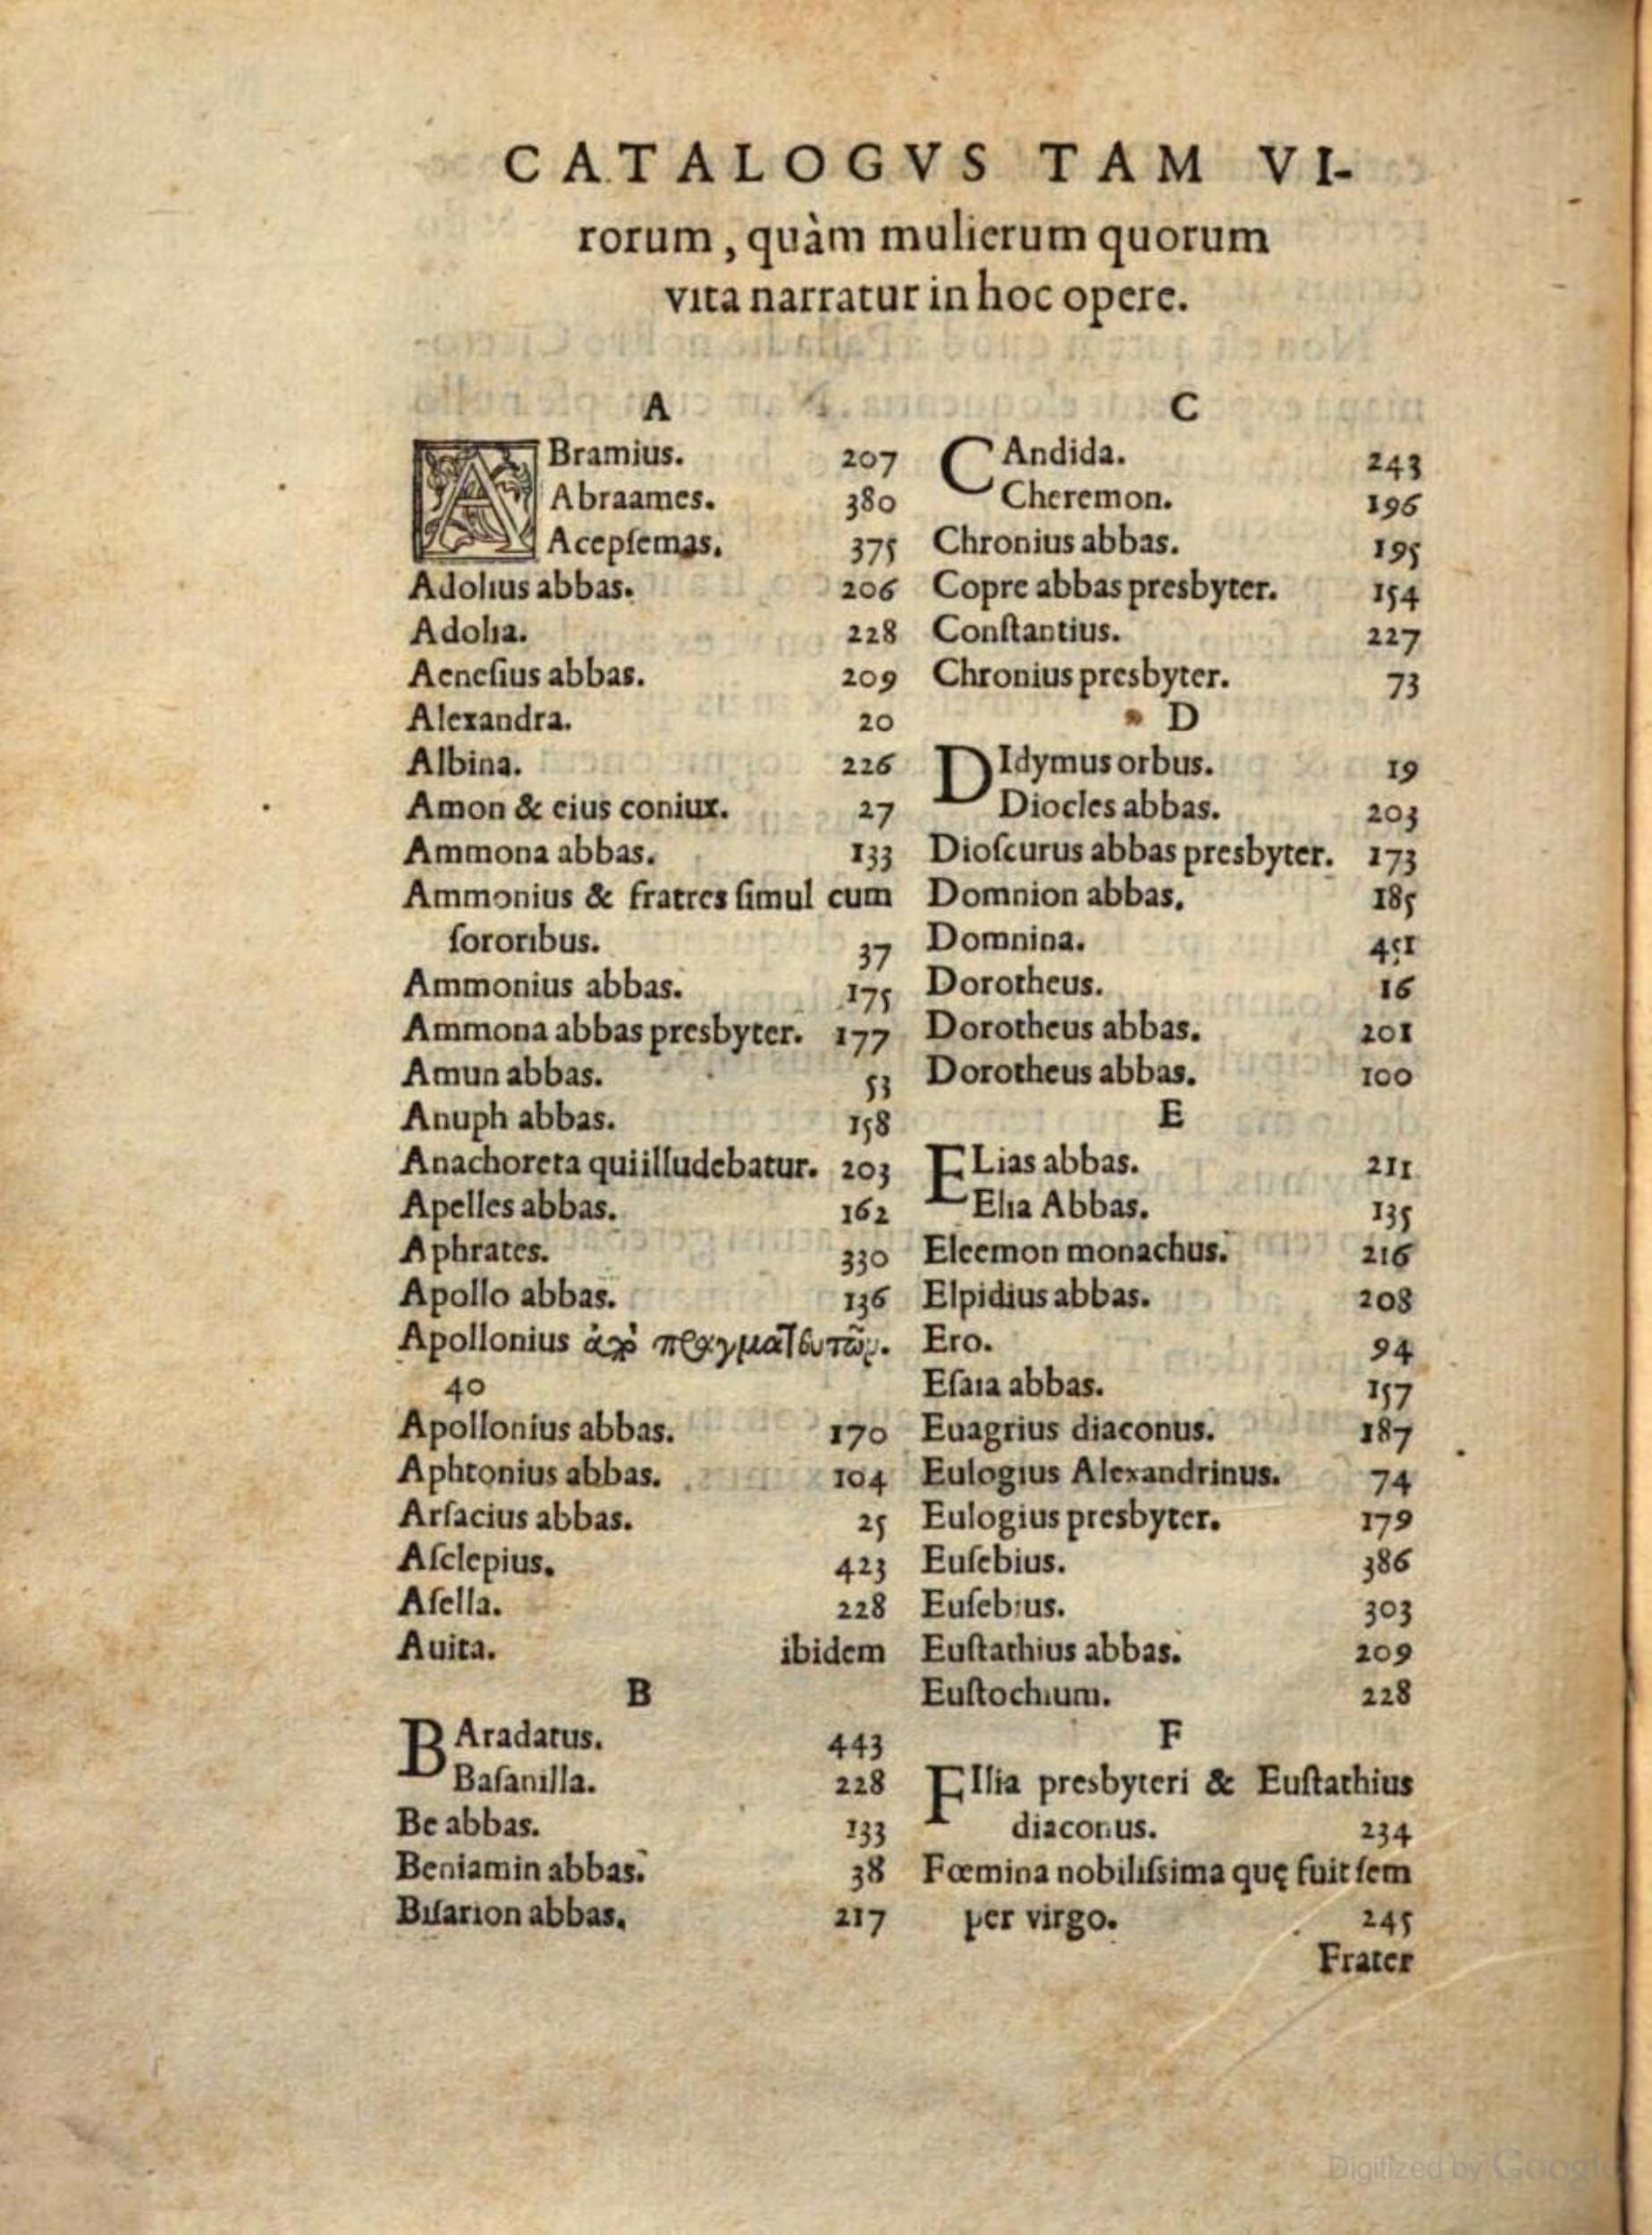 CATALOGVS TAM VI-
rorum, quàm mulierum quorum
vita narratur in hoc opere.
A
ABramius. 207
Abraames. 380
Acepſemas. 375
Adolius abbas. 206
Adolia. 228
Aeneſius abbas. 209
Alexandra. 20
Albina. 226
Amon & eius coniux. 27
Ammona abbas. 133
Ammonius & fratres ſimul cum
ſororibus. 37
Ammonius abbas. 175
Ammona abbas presbyter. 177
Amun abbas. 53
Anuph abbas. 158
Anachoreta qui illudebatur. 203
Apelles abbas. 162
Aphrates. 330
Apollo abbas. 136
Apollonius ἀπὸ πραγματευτῶν.
40
Apollonius abbas. 170
Aphtonius abbas. 104
Arſacius abbas. 25
Aſclepius. 423
Aſella. 228
Auita. ibidem
B
BAradatus. 443
Baſanilla. 228
Be abbas. 133
Beniamin abbas. 38
Biſarion abbas. 217
C
CAndida. 243
Cheremon. 196
Chronius abbas. 195
Copre abbas presbyter. 154
Conſtantius. 227
Chronius presbyter. 73
D
DIdymus orbus. 19
Diocles abbas. 203
Dioſcurus abbas presbyter. 173
Domnion abbas. 185
Domnina. 451
Dorotheus. 16
Dorotheus abbas. 201
Dorotheus abbas. 100
E
ELias abbas. 211
Elia Abbas. 135
Eleemon monachus. 216
Elpidius abbas. 208
Ero. 94
Eſaia abbas. 157
Euagrius diaconus. 187
Eulogius Alexandrinus. 74
Eulogius presbyter. 179
Euſebius. 386
Euſebius. 303
Euſtathius abbas. 209
Euſtochium. 228
F
FIlia presbyteri & Euſtathius
diaconus. 234
Fœmina nobiliſsima quę fuit ſem
per virgo. 245
Frater
Digitized by Google